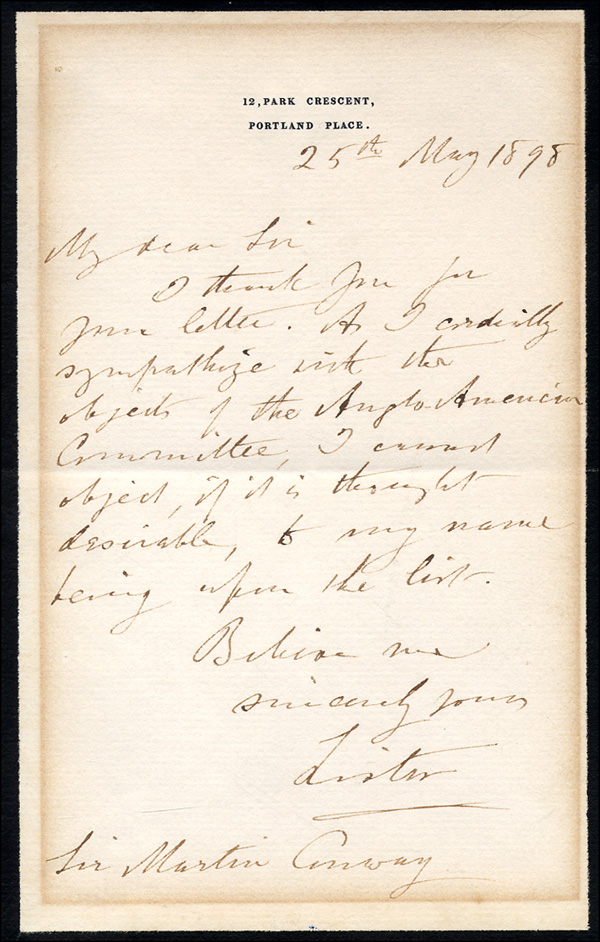 12, PARK CRESCENT,
PORTLAND PLACE.
25th May 1898
My dear Sir
I thank you for
your letter. As I cordially
sympathize with the
objects of the Anglo-American
Committee, I cannot
object, if it is thought
desirable, to my name
being upon the list.
Believe me
sincerely yours
Lister
Sir Martin Conway